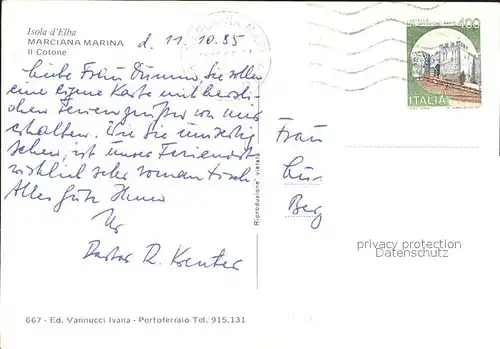 Isola d'Elba
MARCIANA MARINA
Il Cotone
d. 11.10.85
400
ITALIA
Liebe Frau Sie sollen
eine eigene Karte mit herzli-
chen Feriengrüßen von mir
erhalten. Wie Sie umseitig
sehen, ist unser Ferienort
wirklich sehr romantisch.
Alles Gute Ihnen
Ihr
Pastor R. Kenter
Frau
Berg
Riproduzione vietata
privacy protection
Datenschutz
667 - Ed. Vannucci Ivana - Portoferraio Tel. 915.131